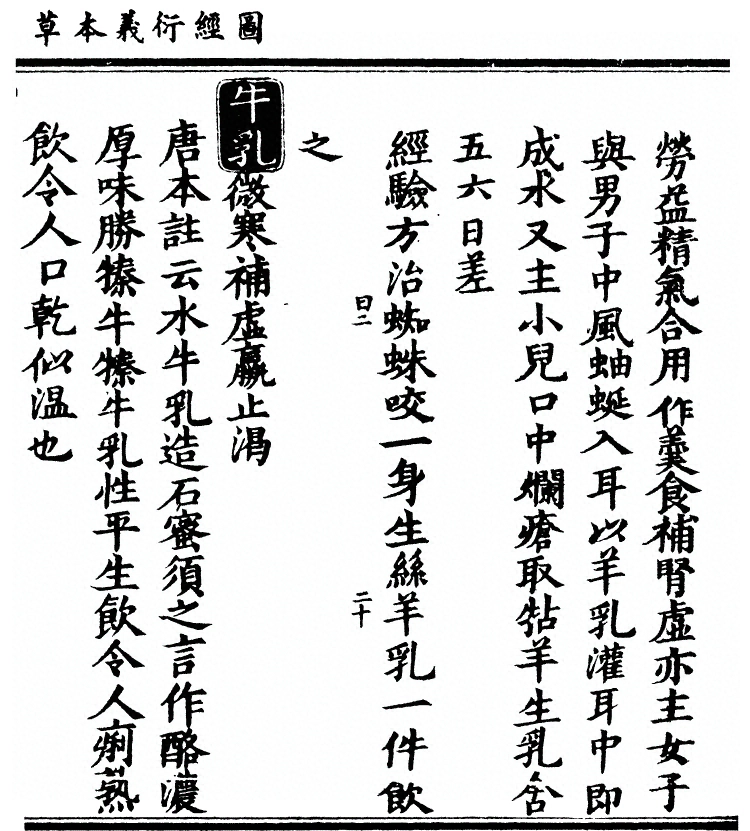 圖經衍義本草
勞益精氣合用作羹食補腎虛亦主女子
與男子中風蚰蜒入耳以羊乳灌耳中即
成水又主小兒口中爛瘡取羖羊生乳含
五六日差
經驗方治蜘蛛咬一身生絲羊乳一件飲
之
牛乳微寒補虛羸止渴
唐本註云水牛乳造石蜜須之言作酪濃
厚味勝㹀牛㹀牛乳性平生飲令人痢熱
飲令人口乾似温也
曰二
二十